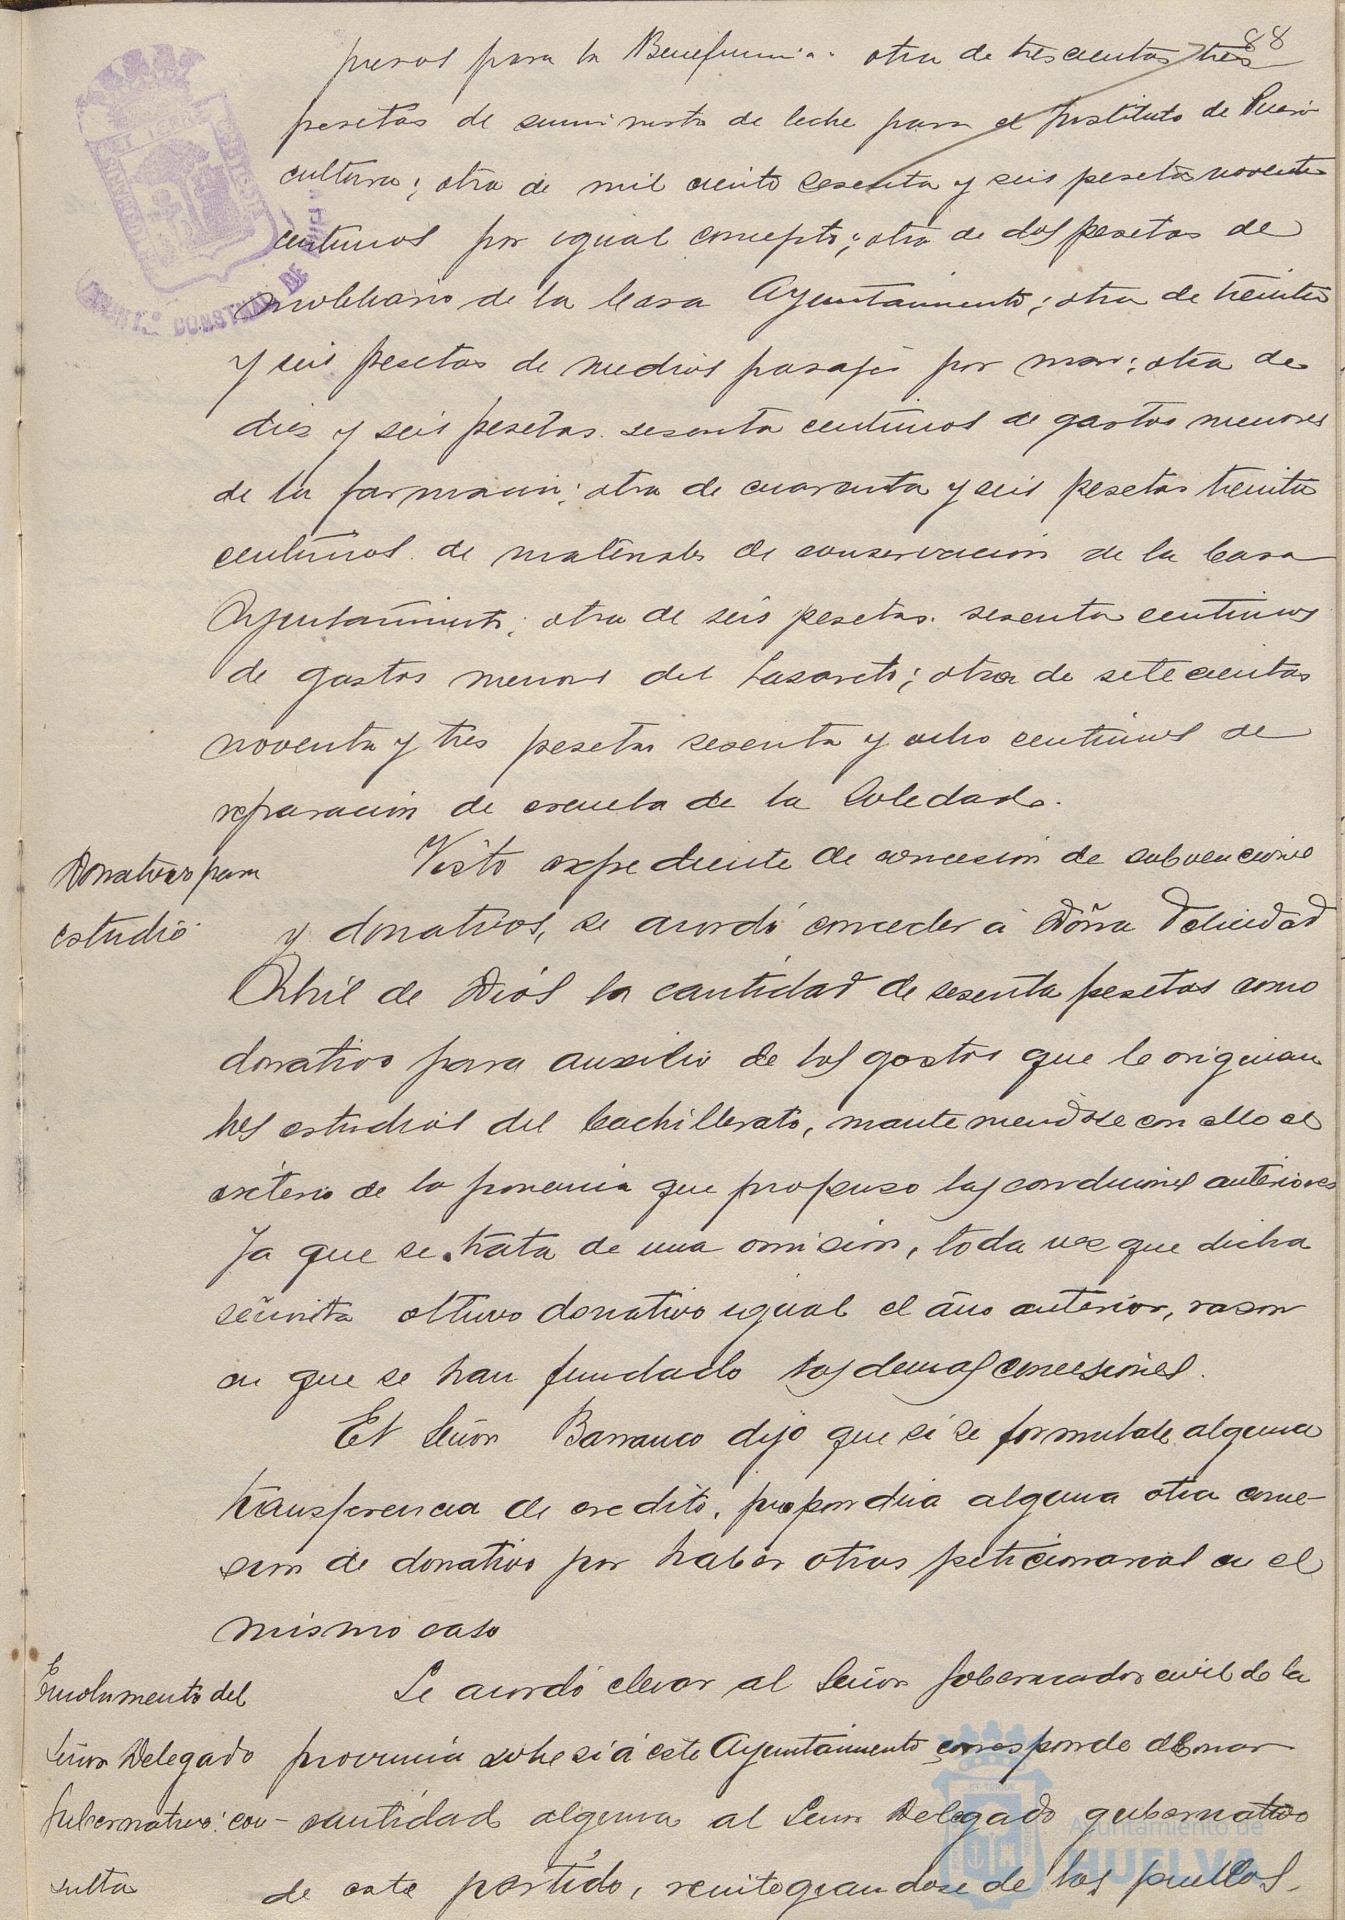 88
para la Beneficencia. otra de trescientas tres
pesetas de suministro de leche para el Instituto de Pueri-
cultura; otra de mil ciento sesenta y seis pesetas noventa
centimos por igual concepto; otra de dos pesetas de
mobiliario de la Casa Ayuntamiento; otra de treinta
y seis pesetas de medios pasajes por mar; otra de
diez y seis pesetas sesenta centimos de gastos menores
de la farmacia; otra de cuarenta y seis pesetas treinta
centimos de materiales de conservacion de la Casa
Ayuntamiento; otra de seis pesetas sesenta centimos
de gastos menores del Lasareto; otra de setecientas
noventa y tres pesetas sesenta y ocho centimos de
reparación de escuela de la Soledad.
Donativo para
estudio
Visto expediente de concesion de subvenciones
y donativos, se acordó conceder á Doña Felicidad
Abril de Dios la cantidad de sesenta pesetas como
donativo para auxilio de los gastos que le originan
los estudios del Bachillerato, manteniendose con ello el
criterio de la ponencia que propuso las condiciones anteriores
ya que se trata de una omision, toda vez que dicha
señorita obtuvo donativo igual el año anterior, rason
en que se han fundado las demas concesiones.
El Señor Barranco dijo que si se formulase alguna
transferencia de credito, propondria alguna otra conce-
sion de donativo por haber otros peticionarios en el
mismo caso
Emolumento del
Señor Delegado
Gubernativo: con-
sulta
Se acordó elevar al Señor Gobernador civil de la
provincia sobre si á este Ayuntamiento corresponde abonar
cantidad alguna al Señor Delegado gubernativo
de este partido, reintegrandose de los pueblos,
Ayuntamiento de
HUELVA